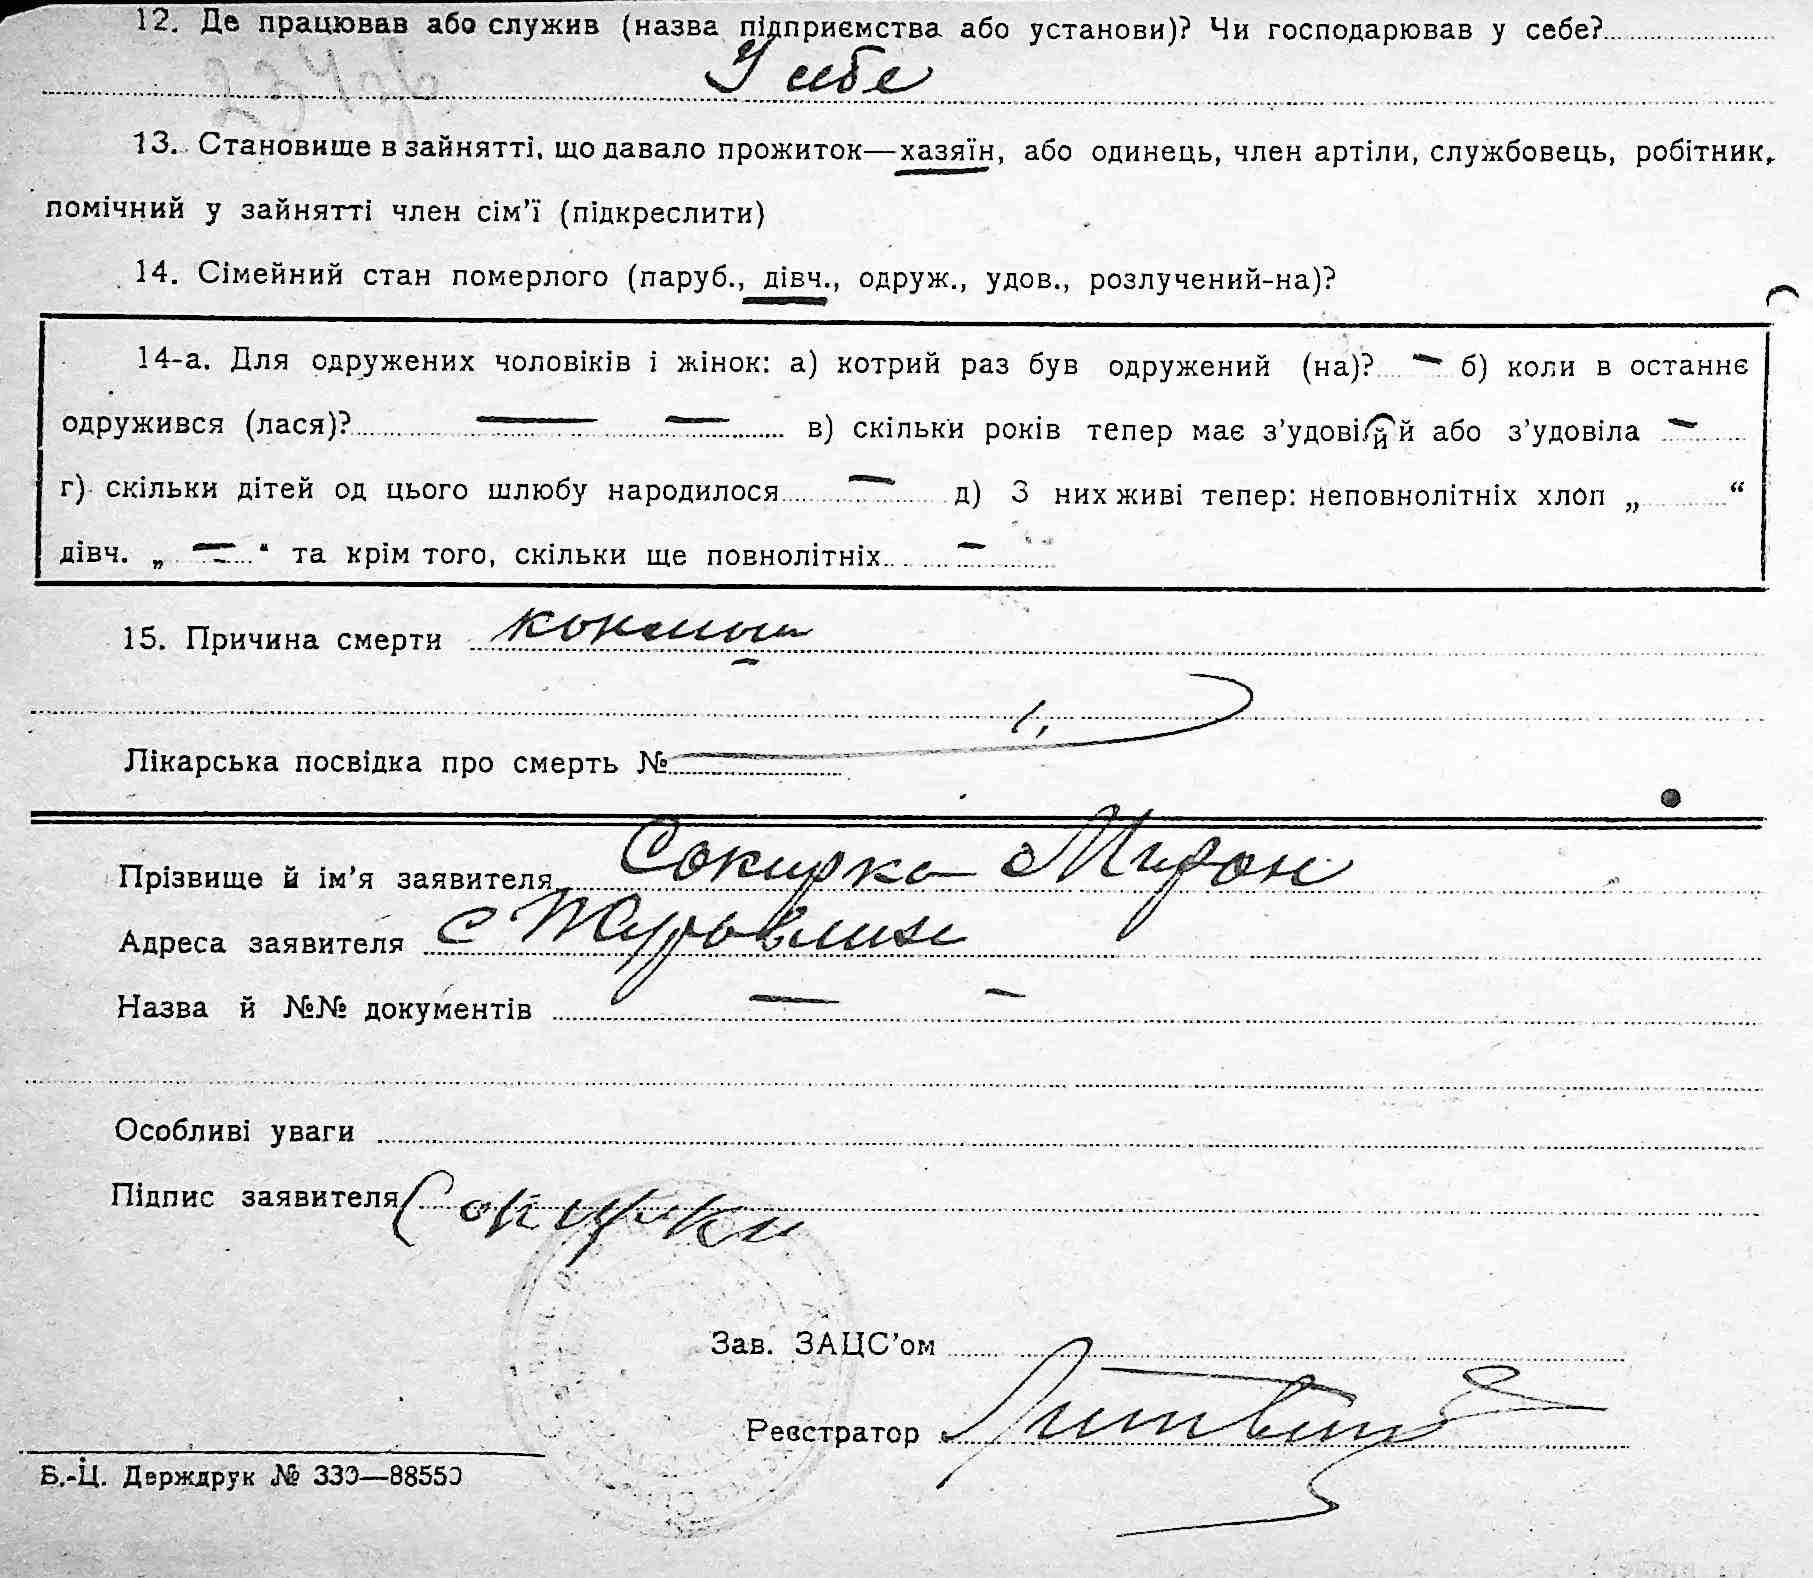 12. Де працював або служив (назва підприємства або установи)? Чи господарював у себе?
У себе
13. Становище в зайнятті, що давало прожиток—хазяїн, або одинець, член артіли, службовець, робітник,
помічний у зайнятті член сім'ї (підкреслити)
14. Сімейний стан померлого (паруб., дівч., одруж., удов., розлучений-на)?
14-а. Для одружених чоловіків і жінок: а) котрий раз був одружений (на)? — б) коли в останнє
одружився (лася)? — — в) скільки років тепер має з'удові й або з'удовіла —
г) скільки дітей од цього шлюбу народилося — д) З них живі тепер: неповнолітніх хлоп „ “
дівч. „ — “ та крім того, скільки ще повнолітніх —
15. Причина смерти
Лікарська посвідка про смерть №
Прізвище й ім'я заявителя Сокирка Мирон
Адреса заявителя с Журавлиха
Назва й №№ документів — —
Особливі уваги
Підпис заявителя Сокирка
Зав. ЗАЦС'ом
Реєстратор
Б.-Ц. Держдрук № 330—88550